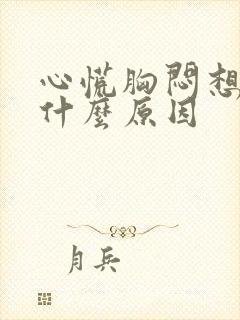 心慌胸悶想
什麼原因
月兵